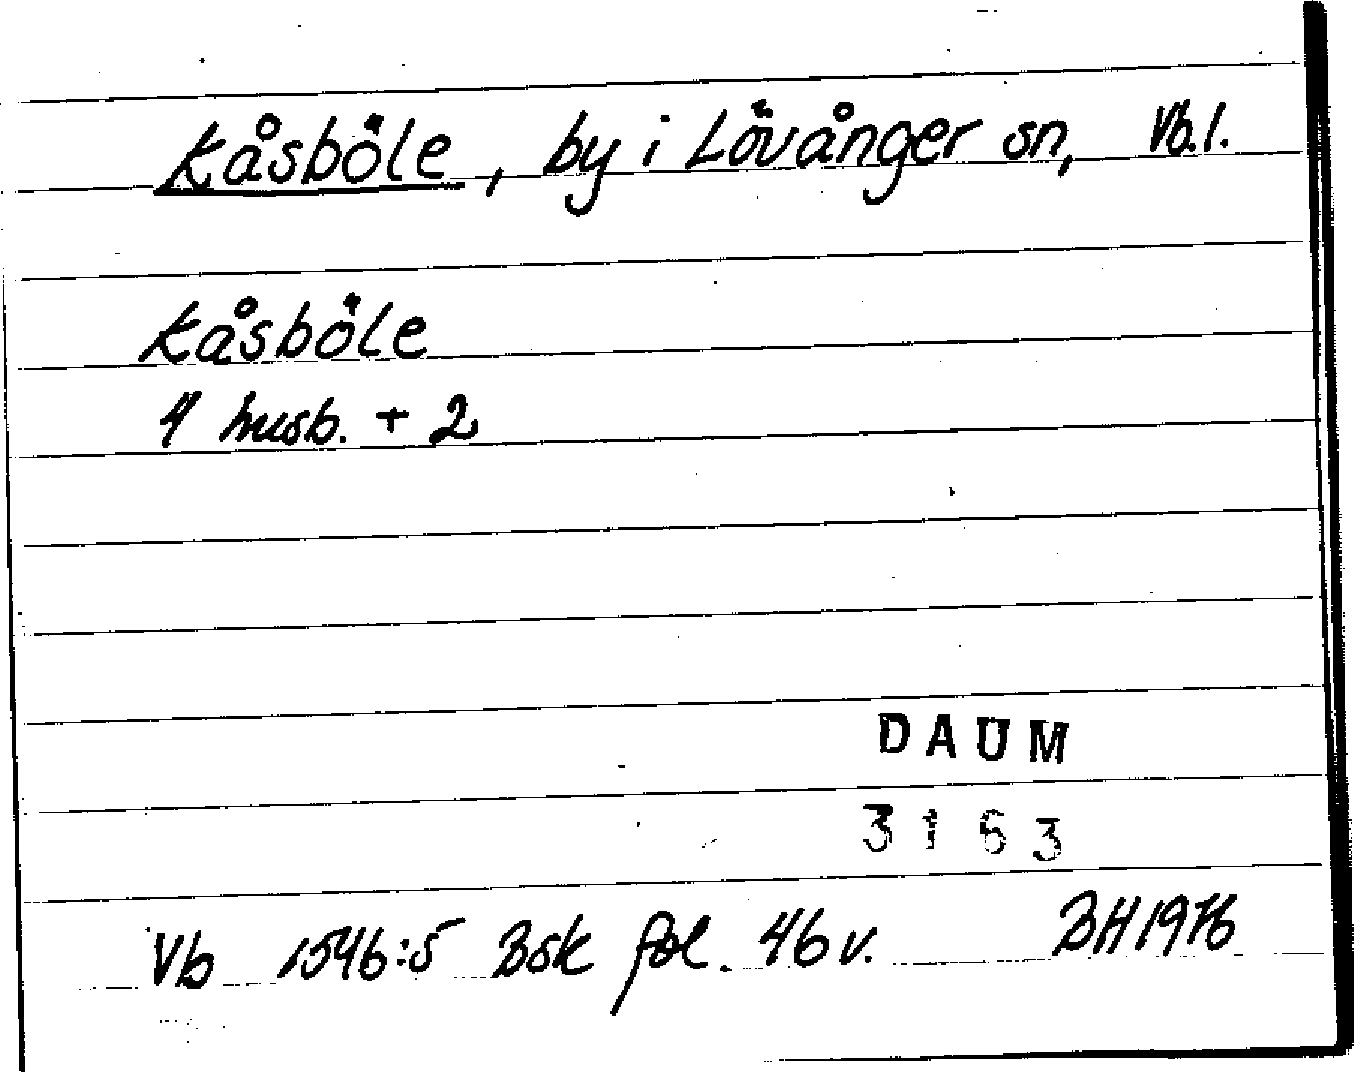 Kåsböle, by i Lövånger sn, Vb.l.
Kåsböle
4 husb. + 2
DAUM
3163
Vb 1546:5 Bsk fol. 46 v. BH 1976